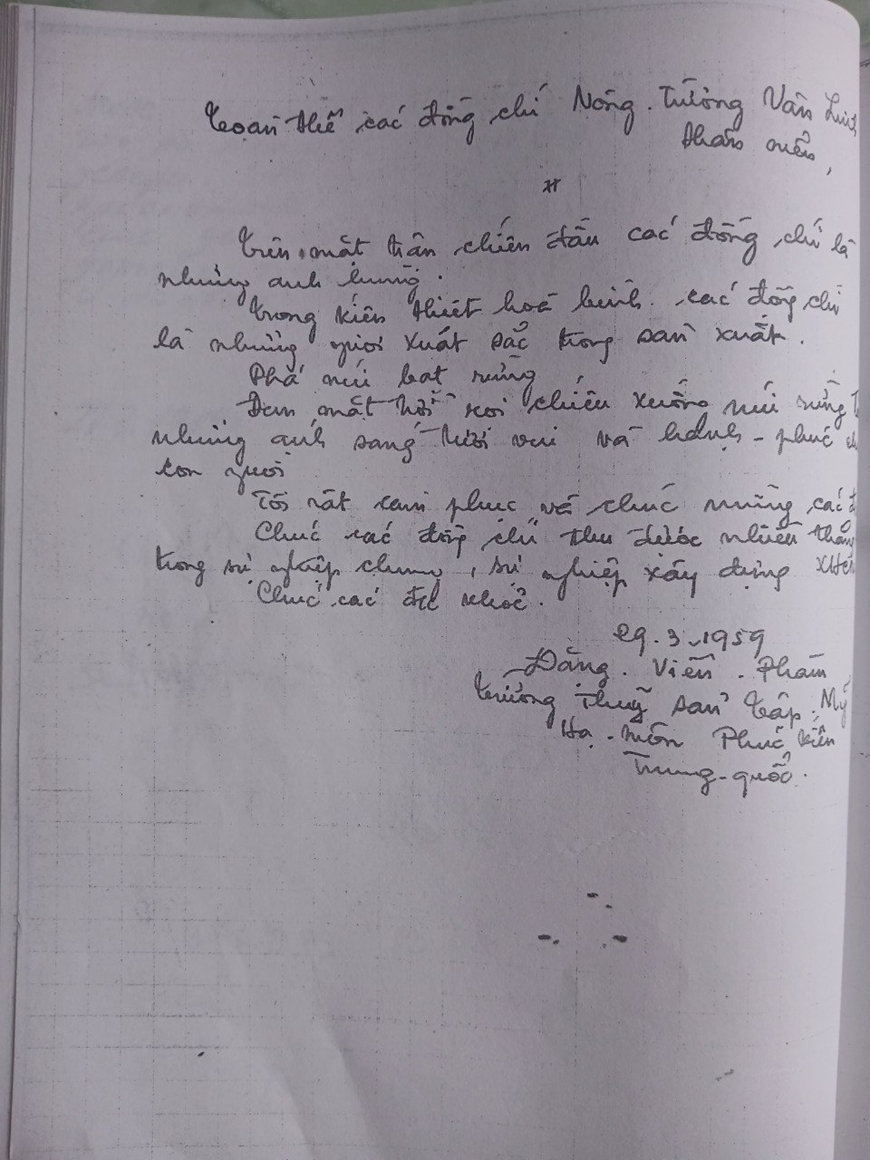 toàn thể các đồng chí Nông. Trường Vân Lĩnh
thân mến,
*
trên mặt trận chiến đấu các đồng chí là
những anh hùng.
trong kiến thiết hoà bình. các đồng chí
là những người xuất sắc trong sản xuất.
Phá núi bạt rừng
Đem mặt trời rọi chiếu xuống núi rừng
những ánh sáng tươi vui và hạnh - phúc
con người
Tôi rất cảm phục và chúc mừng các
Chúc các đồng chí thu được nhiều thắng
trong sự nghiệp chung, sự nghiệp xây dựng
Chúc các đ/c khoẻ.
29.3.1959
Đặng. Viễn. Phàm
trường Thuỷ sản Tập. Mỹ
Hạ. môn Phúc kiến
Trung-quốc.